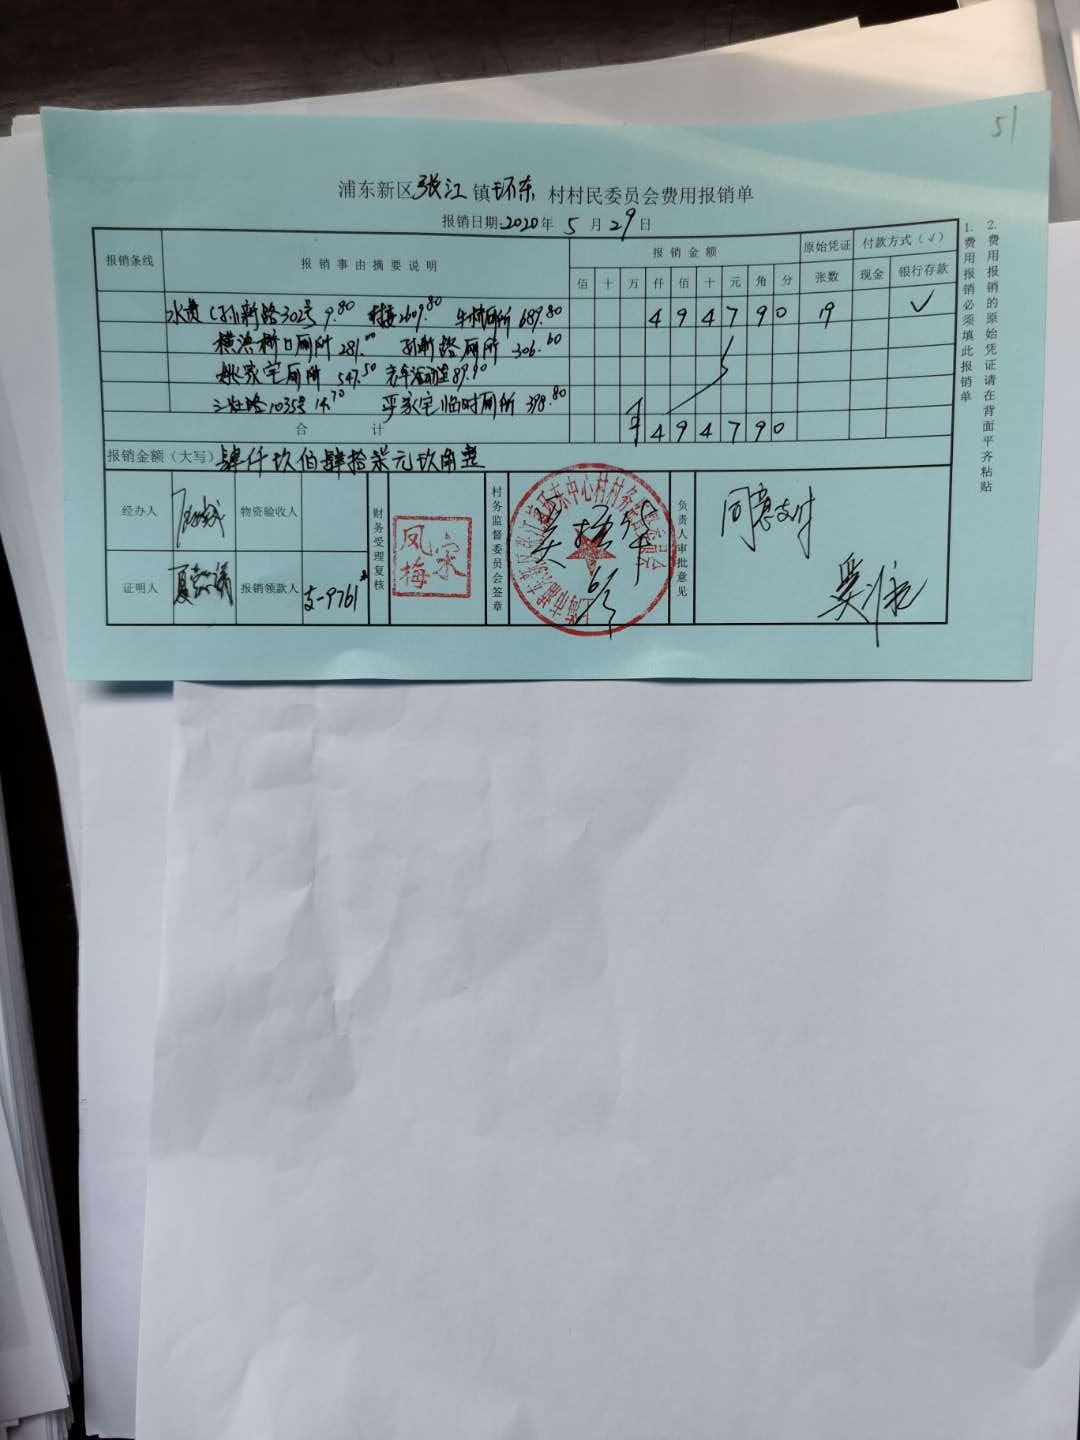 51
浦东新区张江镇环东村村民委员会费用报销单
报销日期:2020年5月29日
报销条线 报销事由摘要说明 报销金额 原始凭证张数 付款方式(√)
佰 十 万 仟 佰 十 元 角 分 现金 银行存款
水费(孙新路302号 9.80 2609.80 牛桥厕所 689.80 4 9 4 7 9 0 19 √
横浜桥口厕所 281.00 孙新路厕所 306.60
姚家宅厕所 547.50 老年活动室 89.90
三灶路1035号 14.70 严家宅临时厕所 398.80
合计 ¥ 4 9 4 7 9 0
报销金额(大写) 肆仟玖佰肆拾柒元玖角整
经办人 物资验收人 财务受理复核 村务监督委员会签章 负责人审批意见 同意支付
证明人 报销领款人 支-9761
宋凤梅
1.费用报销必须填此报销单
2.费用报销的原始凭证请在背面平齐粘贴